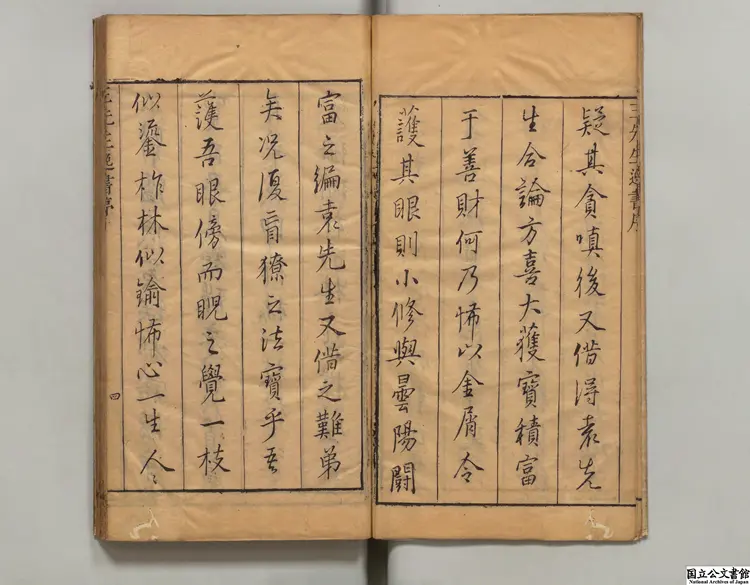 疑其貪嗔後又借得袁先
生合論方喜大獲寶積富
于善財何乃怖以金屑令
護其眼則小修與曇陽闘
富之編袁先生又借之難弟
矣况復盲獠之法寶乎吾
護吾眼傍而睨之覺一枝
似鎏柞林似鍮怖心一生人〻
四
国立公文書館
National Archives of Japan